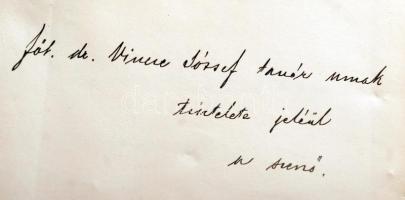 főt. dr. Vincze József tanár urnak
tisztelete jeléül
a szerző.